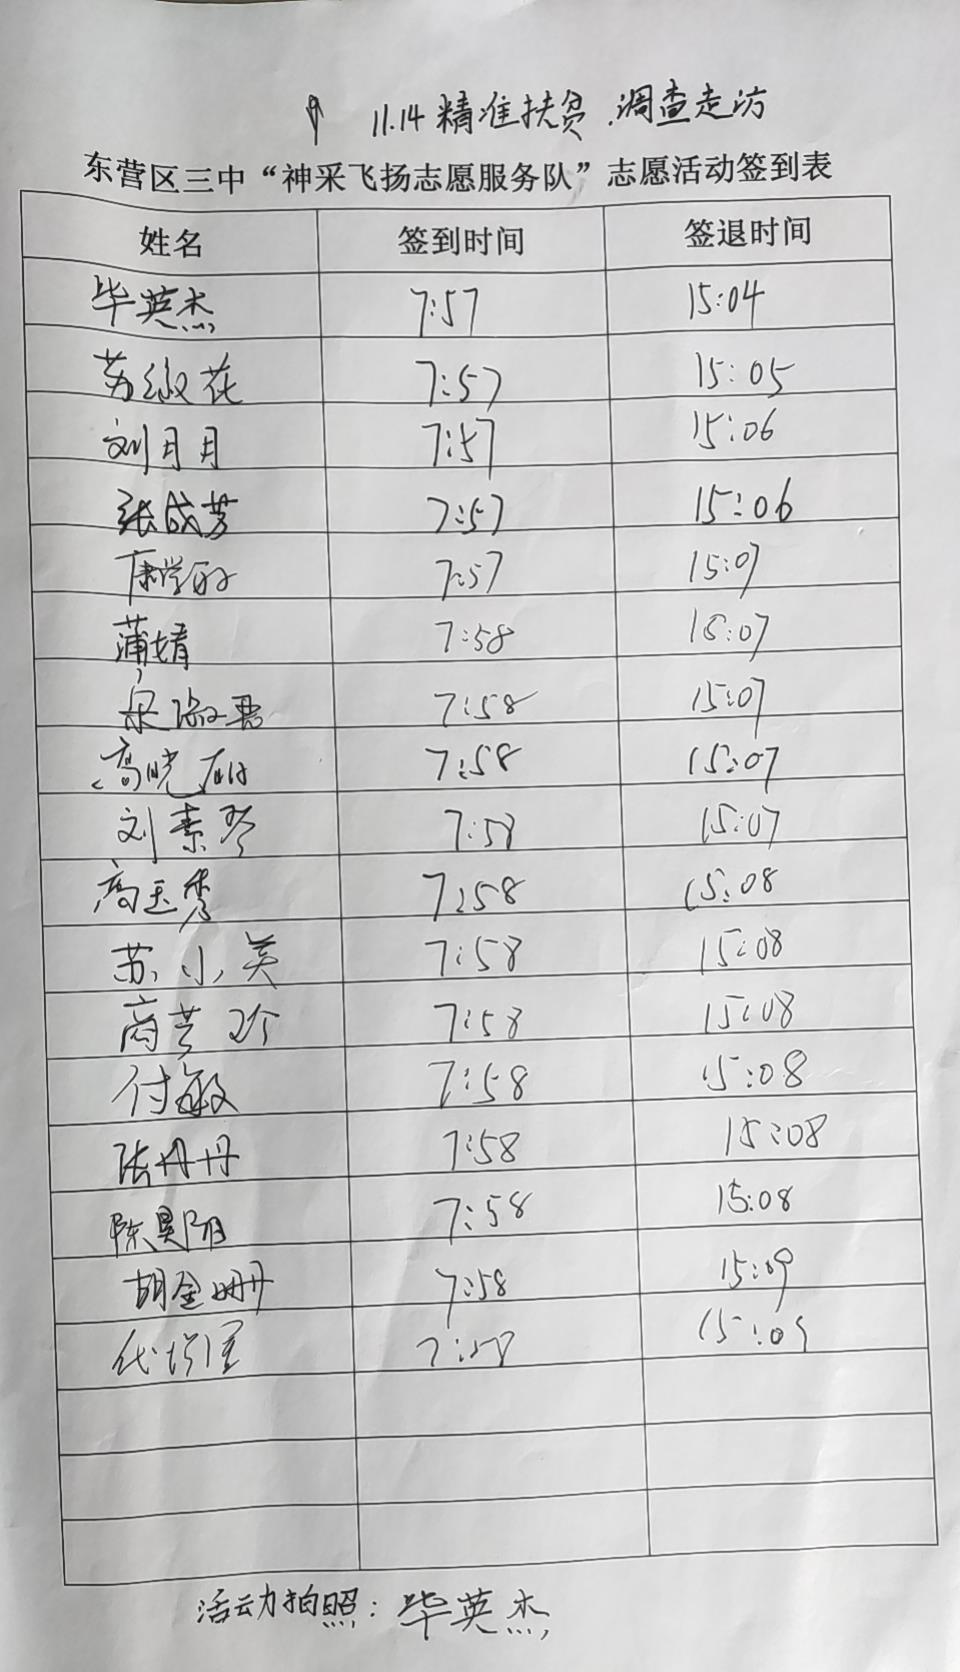 11.14 精准扶贫.调查走访
东营区三中“神采飞扬志愿服务队”志愿活动签到表
姓名 签到时间 签退时间
毕英杰 7:57 15:04
苏淑花 7:57 15:05
刘月月 7:57 15:06
张成芳 7:57 15:06
7:57 15:07
蒲婧 7:58 15:07
7:58 15:07
高晓 7:58 15:07
刘素琴 7:58 15:07
高玉秀 7:58 15:08
苏小英 7:58 15:08
7:58 15:08
付敏 7:58 15:08
张丹丹 7:58 15:08
陈昊阳 7:58 15:08
胡金珊 7:58 15:09
代 7:58 15:09
活动拍照：毕英杰